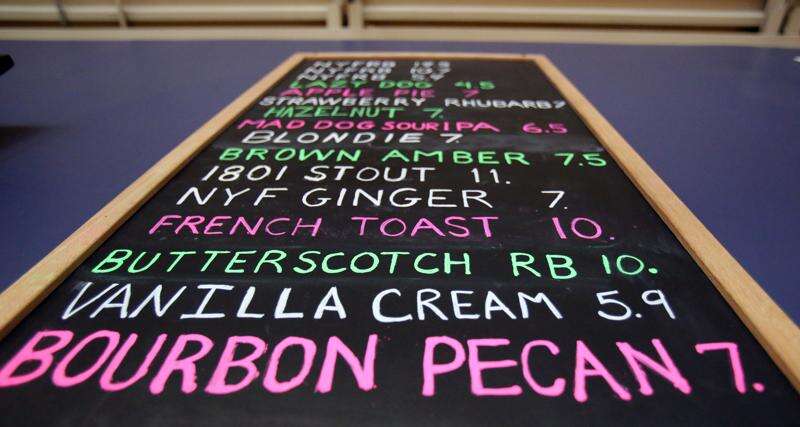 NYFRB
NYFRB 10.7
NYFRB 5.9
LAZY DOG 4.5
APPLE PIE 7
STRAWBERRY RHUBARB 7
HAZELNUT 7.
MAD DOG SOUR IPA 6.5
BLONDIE 7.
BROWN AMBER 7.5
1801 STOUT 11.
NYF GINGER 7.
FRENCH TOAST 10.
BUTTERSCOTCH RB 10.
VANILLA CREAM 5.9
BOURBON PECAN 7.